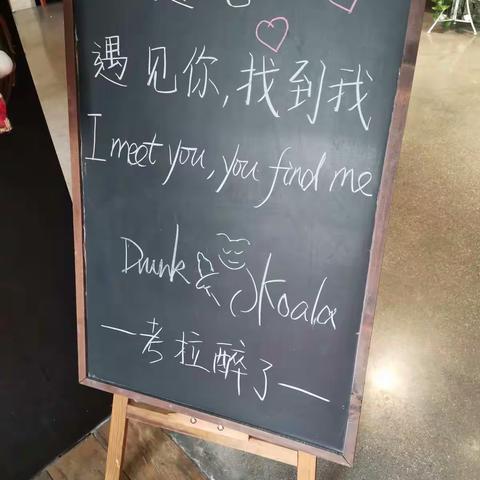 遇见你,找到我
I meet you, you find me
Drunk Koala
一考拉醉了一